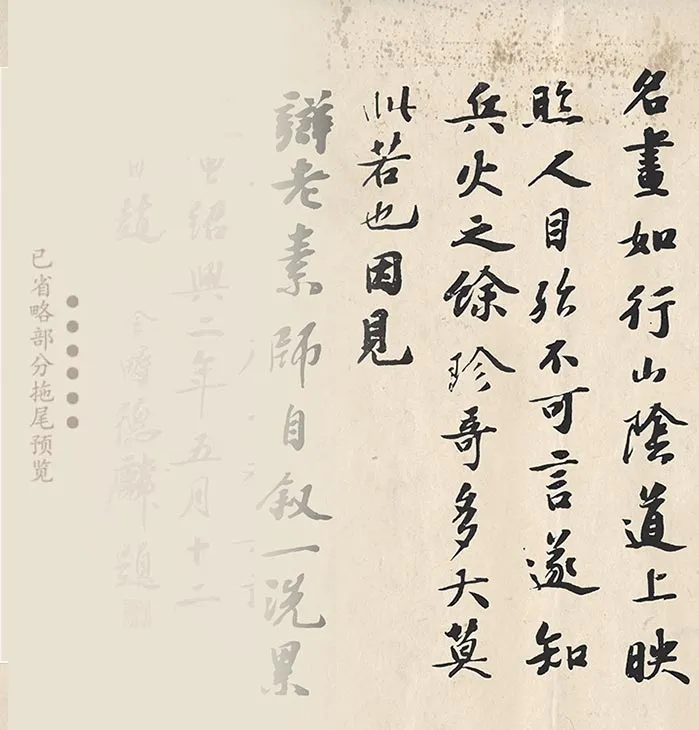 名畫如行山陰道上映
照人目殆不可言遂知
兵火之餘珍奇多大莫
此若也因見
辯老素師自叙一洗累
紹興二年五月十二
日趙令畤德麟題
已省略部分拖尾预览